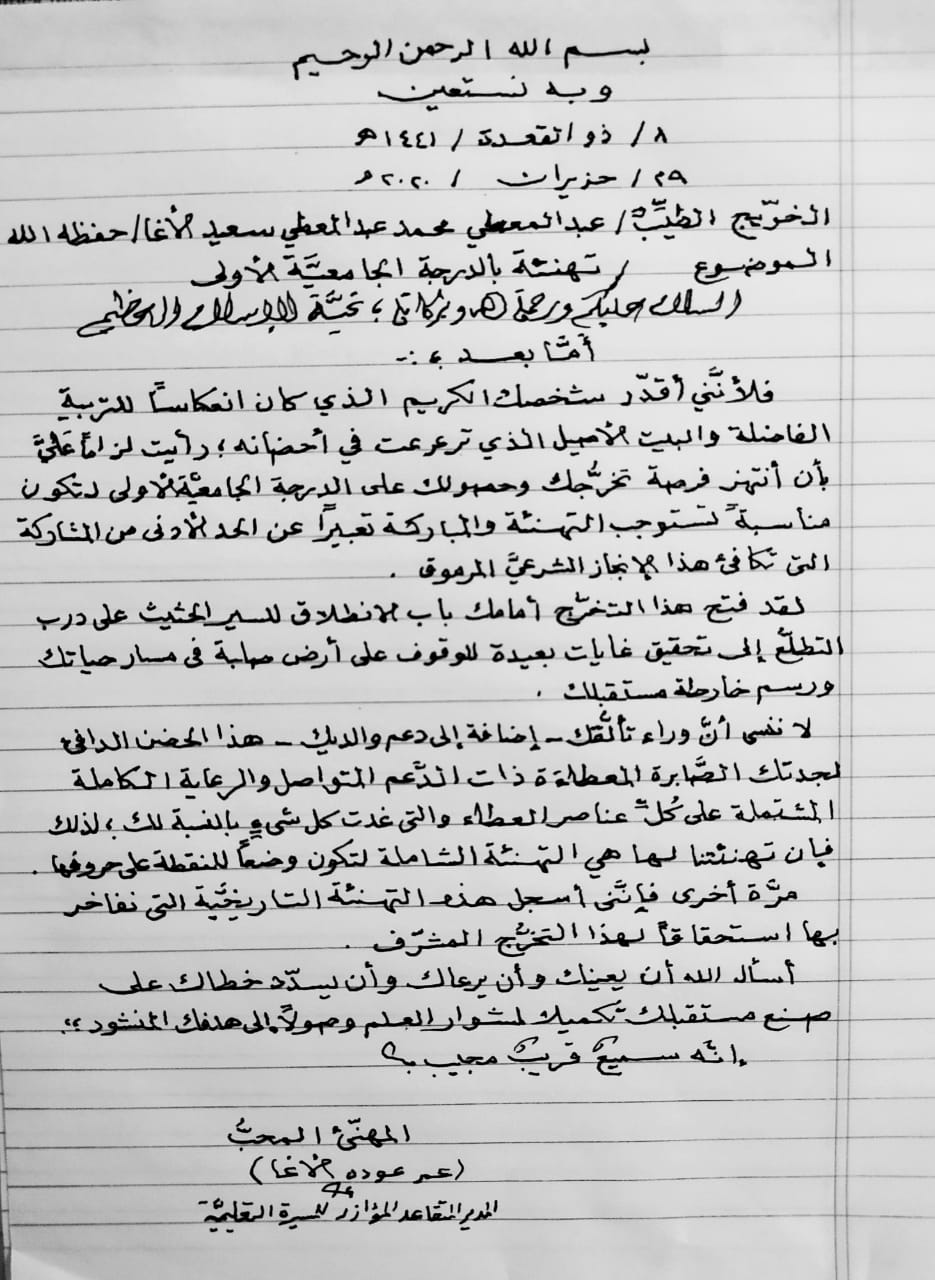 بسم الله الرحمن الرحيم
وبه نستعين
٨/ ذو القعدة / ١٤٤١هـ
٢٩/ حزيران / ٢٠٢٠م
الخرّيج الطيِّب/ عبدالمعطي محمد عبدالمعطي سعيد الأغا/ حفظه الله
الموضوع / تهنئة بالدرجة الجامعيَّة الأولى
السلام عليكم ورحمة الله وبركاته ؛ تحيَّة الإسلام العظيم
أمَّا بعد ؛ :-
فلأنَّني أقدّر شخصك الكريم الذي كان انعكاساً للتربية
الفاضلة والبيت الأصيل الذي ترعرعت في أحضانه ؛ رأيت لزاماً عَليَّ
بأن أنتهز فرصة تخرُّجك وحصولك على الدرجة الجامعيَّة الأولى لتكون
مناسبةً تستوجب التهنئة والمباركة تعبيراً عن الحد الأدنى من المشاركة
التي تكافئ هذا الإنجاز الشرعيَّ المرموق .
لقد فتح هذا التخرُّج أمامك باب الانطلاق للسير الحثيث على درب
التطلُّع إلى تحقيق غايات بعيدة للوقوف على أرض صلبة في مسار حياتك
ورسم خارطة مستقبلك .
لا ننسى أنَّ وراء تألُّقك - إضافة إلى دعم والديك - هذا الحضن الدافئ
لجدتك الصَّابرة المعطاءة ذات الدَّعم المتواصل والرعاية الكاملة
المشتملة على كُلِّ عناصر العطاء والتي غدت كل شيءٍ بالنسبة لك ؛ لذلك
فإن تهنئتنا لها هي التهنئة الشاملة لتكون وضعاً للنقطة على حروفها .
مرَّة أخرى فإنَّني أسجل هذه التهنئة التاريخيَّة التي نفاخر
بها استحقاقاً لهذا التخرُّج المشرّف .
أسأل الله أن يعينك وأن يرعاك وأن يسدّد خطاك على
صنع مستقبلك تكميلاً لمشوار العلم وصولاً إلى هدفك المنشود ؛؛
إنَّه سميعٌ قريبٌ مجيب ؛؛
المهنّئ المحبُّ
(عمر عوده الأغا)
المدير المتقاعد المؤازر للمسيرة التعليميَّة